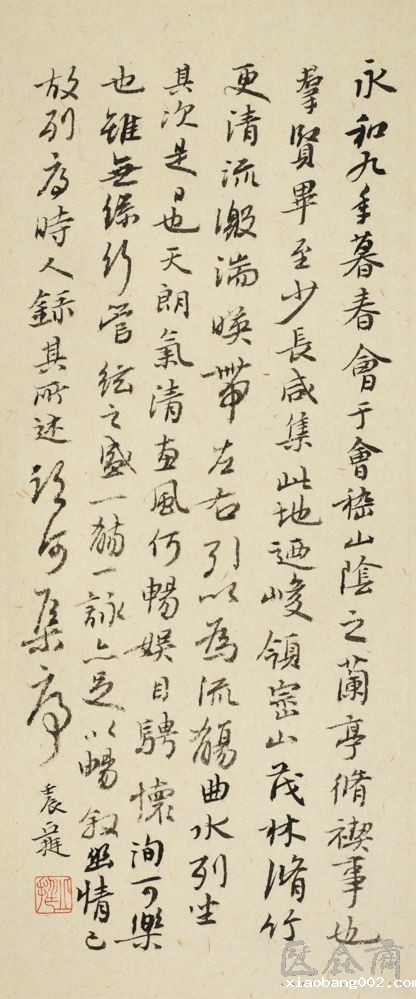 永和九年暮春會于會嵇山陰之蘭亭脩禊事也
羣賢畢至少長咸集此地迺峻領崈山茂林脩竹
更清流激湍暎帶左右引以為流觴曲水列坐
其次是日也天朗氣清惠風何暢娛目騁懷洵可樂
也雖無絲竹管絃之盛一觴一詠亦足以暢敘幽情已
故列序時人錄其所述臨河集序
袁
xiaobang002.com